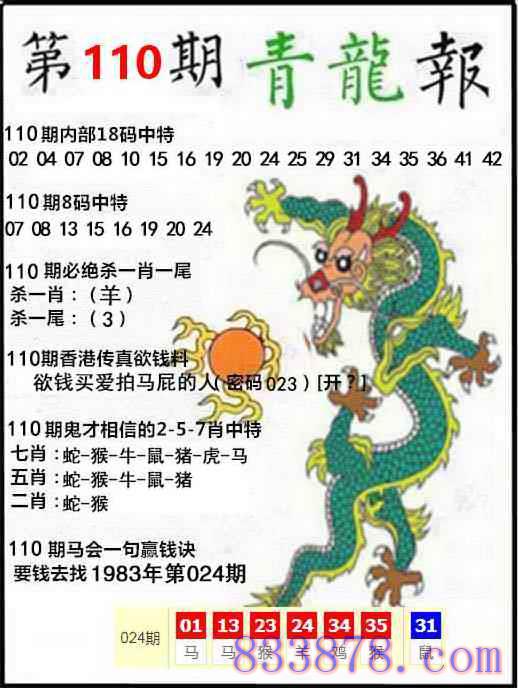 第110期 青龍報
110期内部18码中特
02 04 07 08 10 15 16 19 20 24 25 29 31 34 35 36 41 42
110期8码中特
07 08 13 15 16 19 20 24
110期必绝杀一肖一尾
杀一肖：（羊）
杀一尾：（3）
110期香港传真欲钱料
欲钱买爱拍马屁的人（密码023）[开？]
110期鬼才相信的2-5-7肖中特
七肖：蛇-猴-牛-鼠-猪-虎-马
五肖：蛇-猴-牛-鼠-猪
二肖：蛇-猴
110期马会一句赢钱诀
要钱去找1983年第024期
024期 01 13 23 24 34 35 31
马 马 猴 羊 鸡 猴 鼠
833878.com